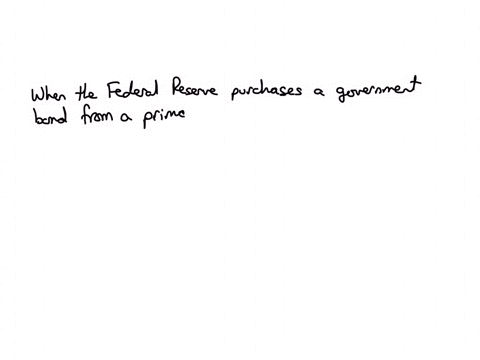 When the Federal Reserve purchases a government
bond from a prime